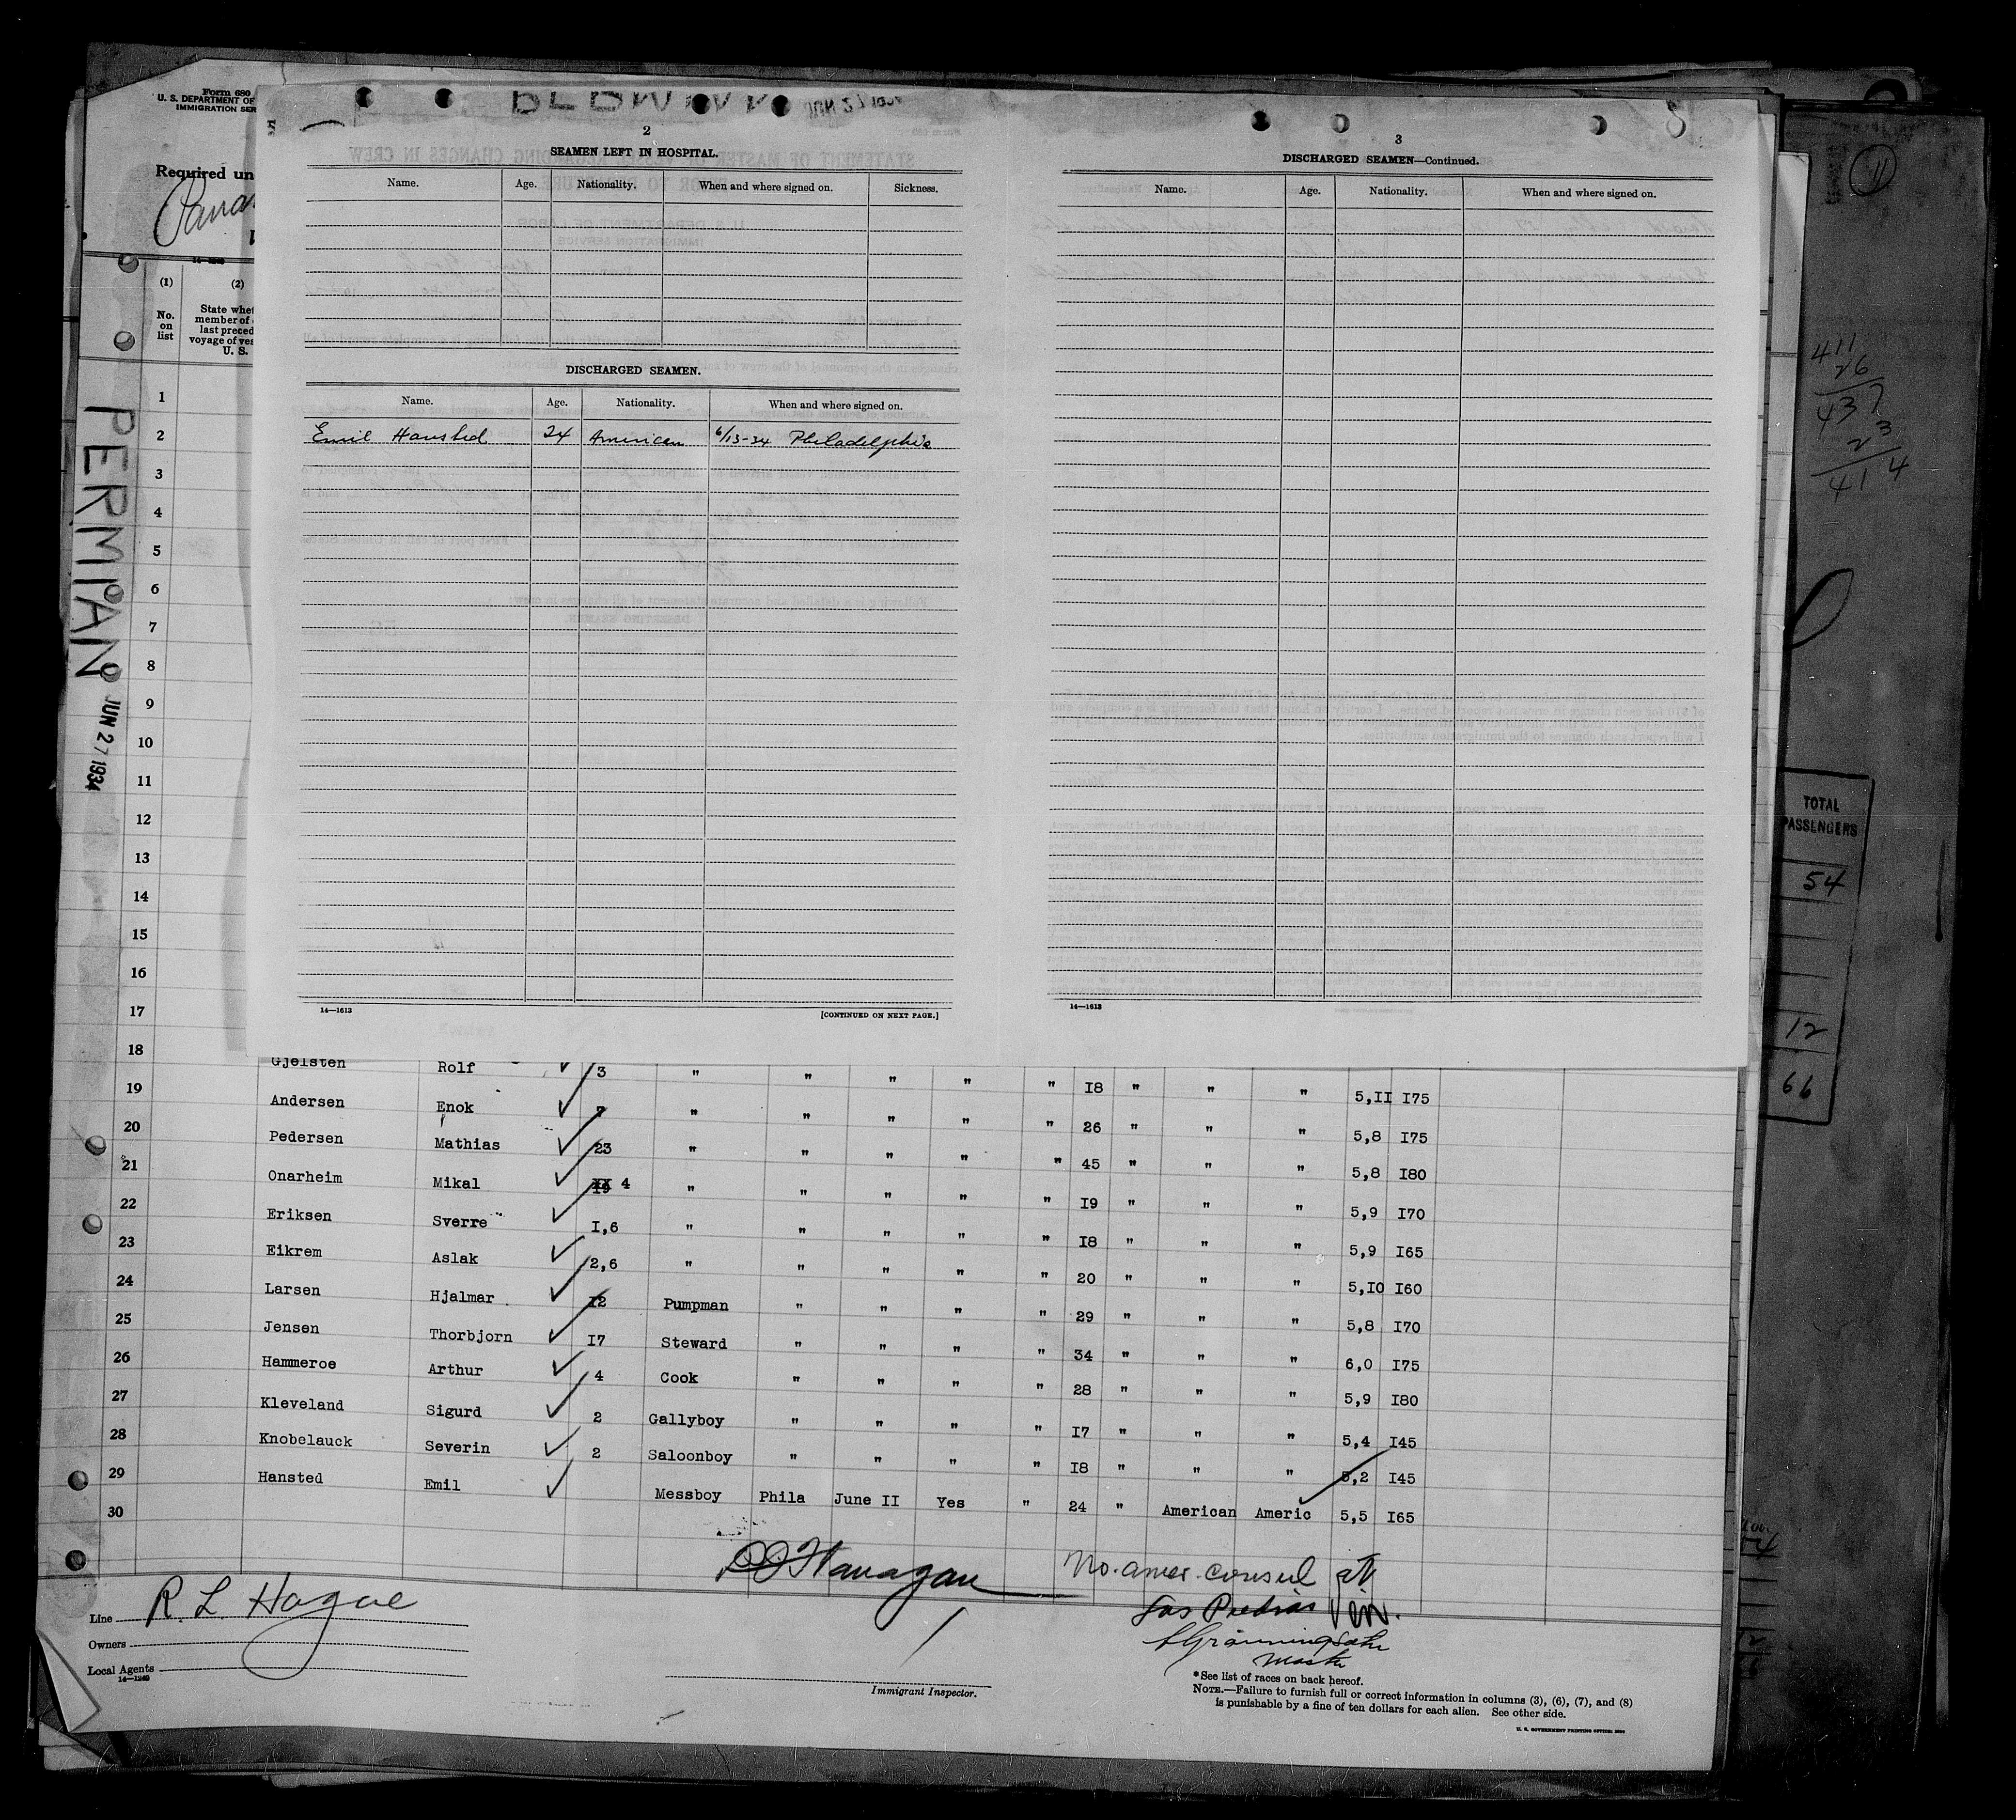 Form 680
U. S. DEPARTMENT OF
IMMIGRATION SER
Required un
(1)
(2)
No.
on
list
State whet
member of
last preced
voyage of ves
U. S.
PERMIAN
JUN 27 1934
JUN 27 1934
2
SEAMEN LEFT IN HOSPITAL.
Name. Age. Nationality. When and where signed on. Sickness.
DISCHARGED SEAMEN.
Name. Age. Nationality. When and where signed on.
Emil Hansted 24 American 6/13-34 Philadelphia
14—1613
[CONTINUED ON NEXT PAGE.]
3
DISCHARGED SEAMEN—Continued.
Name. Age. Nationality. When and where signed on.
14—1613
11
411
26
437
23
414
TOTAL
PASSENGERS
54
12
66
1
2
3
4
5
6
7
8
9
10
11
12
13
14
15
16
17
18 Gjelsten Rolf 3 " " " " " 18 " " " 5,11 175
19 Andersen Enok 7 " " " " " 26 " " " 5,8 175
20 Pedersen Mathias 23 " " " " " 45 " " " 5,8 180
21 Onarheim Mikal 4 " " " " " 19 " " " 5,9 170
22 Eriksen Sverre 1,6 " " " " " 18 " " " 5,9 165
23 Eikrem Aslak 2,6 " " " " " 20 " " " 5,10 160
24 Larsen Hjalmar 12 Pumpman " " " " 29 " " " 5,8 170
25 Jensen Thorbjorn 17 Steward " " " " 34 " " " 6,0 175
26 Hammeroe Arthur 4 Cook " " " " 28 " " " 5,9 180
27 Kleveland Sigurd 2 Gallyboy " " " " 17 " " " 5,4 145
28 Knobelauck Severin 2 Saloonboy " " " " 18 " " " 5,2 145
29 Hansted Emil Messboy Phila June II Yes " 24 " American Americ 5,5 165
30
No. amer. consul at
Las Piedras Ven.
Master
Line R. L. Hague
Owners
Local Agents
14—1240
Immigrant Inspector.
*See list of races on back hereof.
NOTE.—Failure to furnish full or correct information in columns (3), (6), (7), and (8)
is punishable by a fine of ten dollars for each alien. See other side.
U. S. GOVERNMENT PRINTING OFFICE: 1930